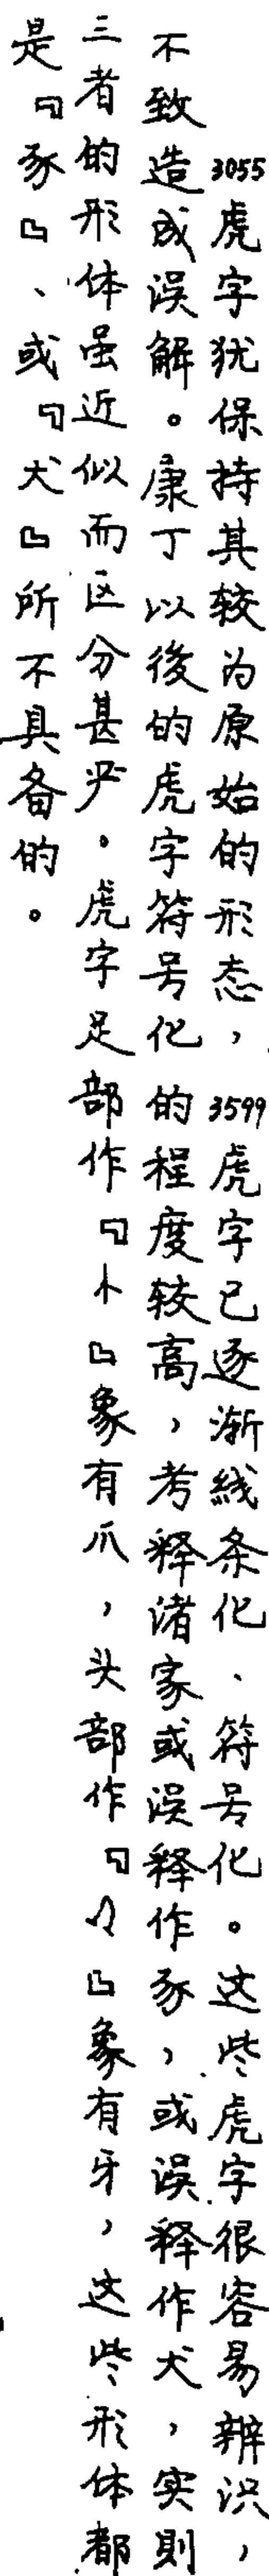 3055虎字犹保持其较为原始的形态，3599虎字已逐渐线条化、符号化。这些虎字很容易辨识，
不致造成误解。康丁以後的虎字符号化的程度较高，考释诸家或误释作豕，或误释作犬，实则
三者的形体虽近似而区分甚严。虎字足部作『』象有爪，头部作『』象有牙，这些形体都
是『豕』、或『犬』所不具备的。